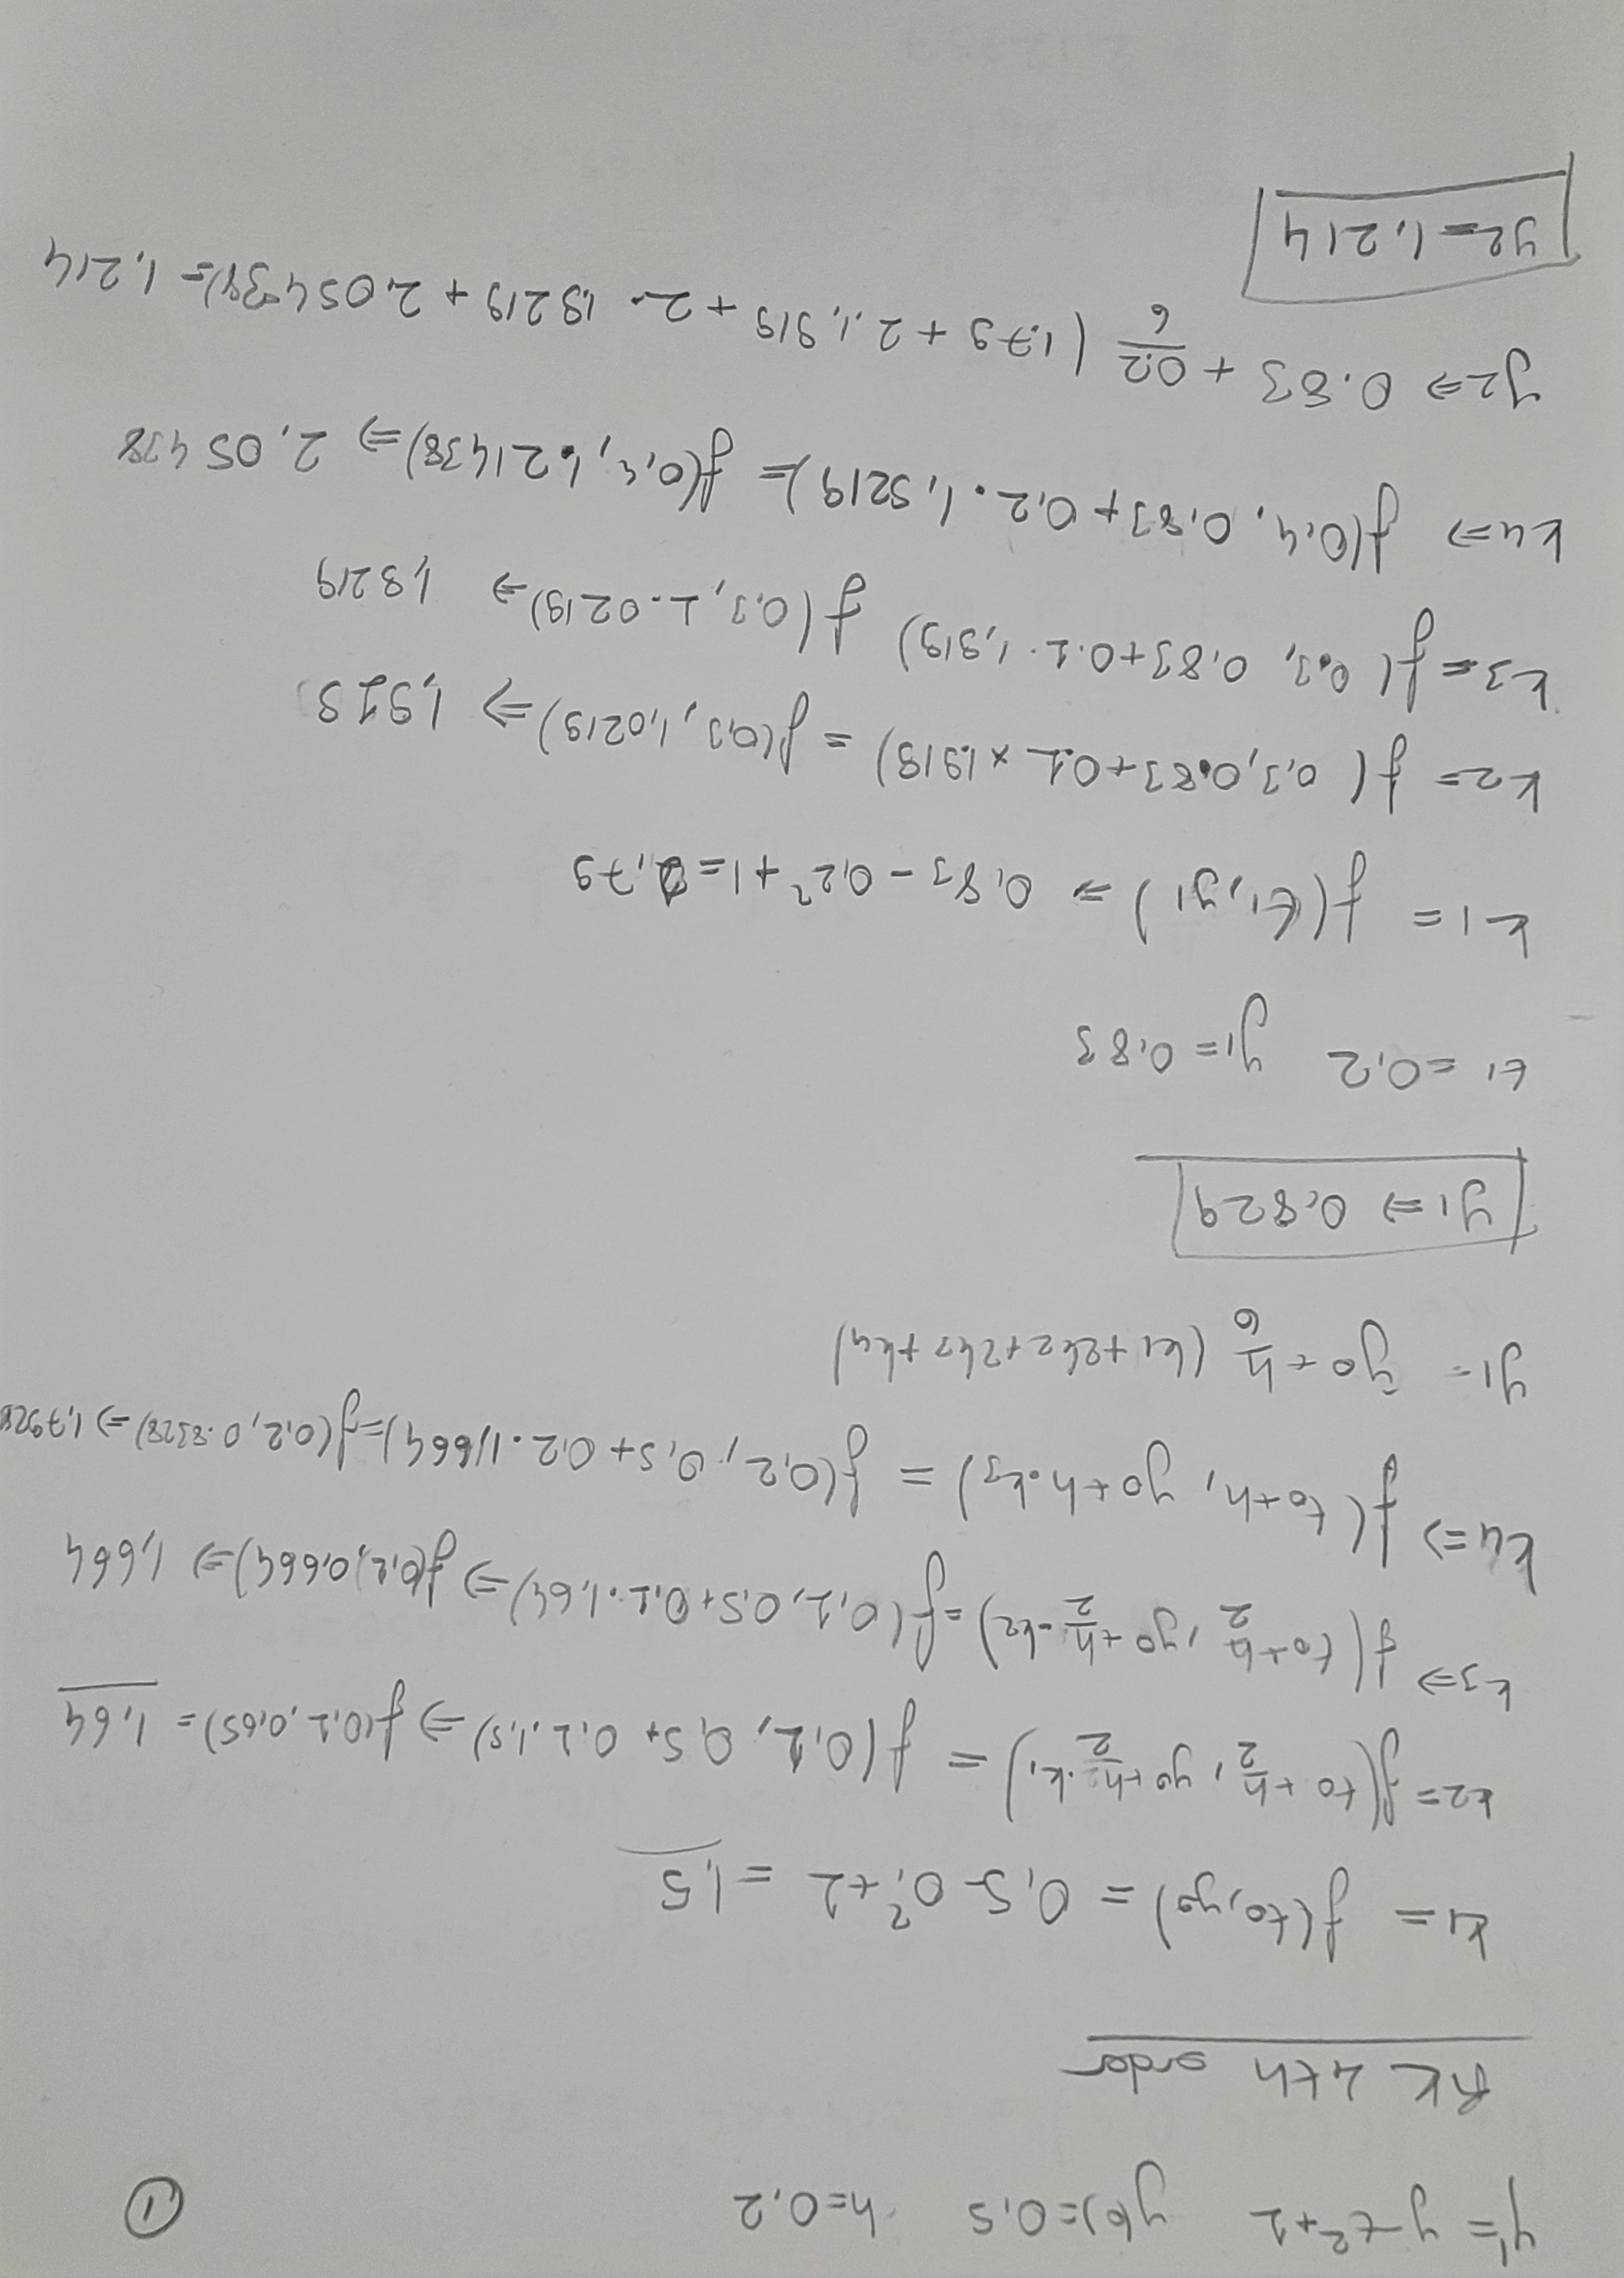 y'= y-t²+1 y(0)=0,5 h=0,2
1
RK 4th order
k1= f(t0,y0) = 0,5-0²+1 = 1,5
k2= f(t0+h/2, y0+h/2.k1) = f(0,1, 0,5+0,1.1,5) ⇒ f(0,1,0,65)= 1,64
k3⇒ f(t0+h/2, y0+h/2.k2) = f(0,1, 0,5+0,1.1,64) ⇒ f(0,1,0,664) ⇒ 1,664
k4⇒ f(t0+h, y0+h.k3) = f(0,2, 0,5+0,2.1,664) = f(0,2, 0.8328) ⇒ 1,7928
y1= y0+h/6 (k1+2k2+2k3+k4)
y1⇒ 0,829
t1=0,2 y1=0,83
k1= f(t1,y1) ⇒ 0,83-0,2²+1=1,79
k2= f(0,3,0.83+0.1×1.919) = f(0,3,1,0219) ⇒ 1,919
k3= f(0.3, 0,83+0.1.1,919) f(0.3,1.0219) ⇒ 1,9219
k4⇒ f(0,4, 0,83+0,2.1,9219)= f(0,4,1.21438) ⇒ 2,05438
y2⇒ 0.83+0.2/6 (1.79+2.1,919+2.1,9219+2,05438)= 1,214
y2=1,214